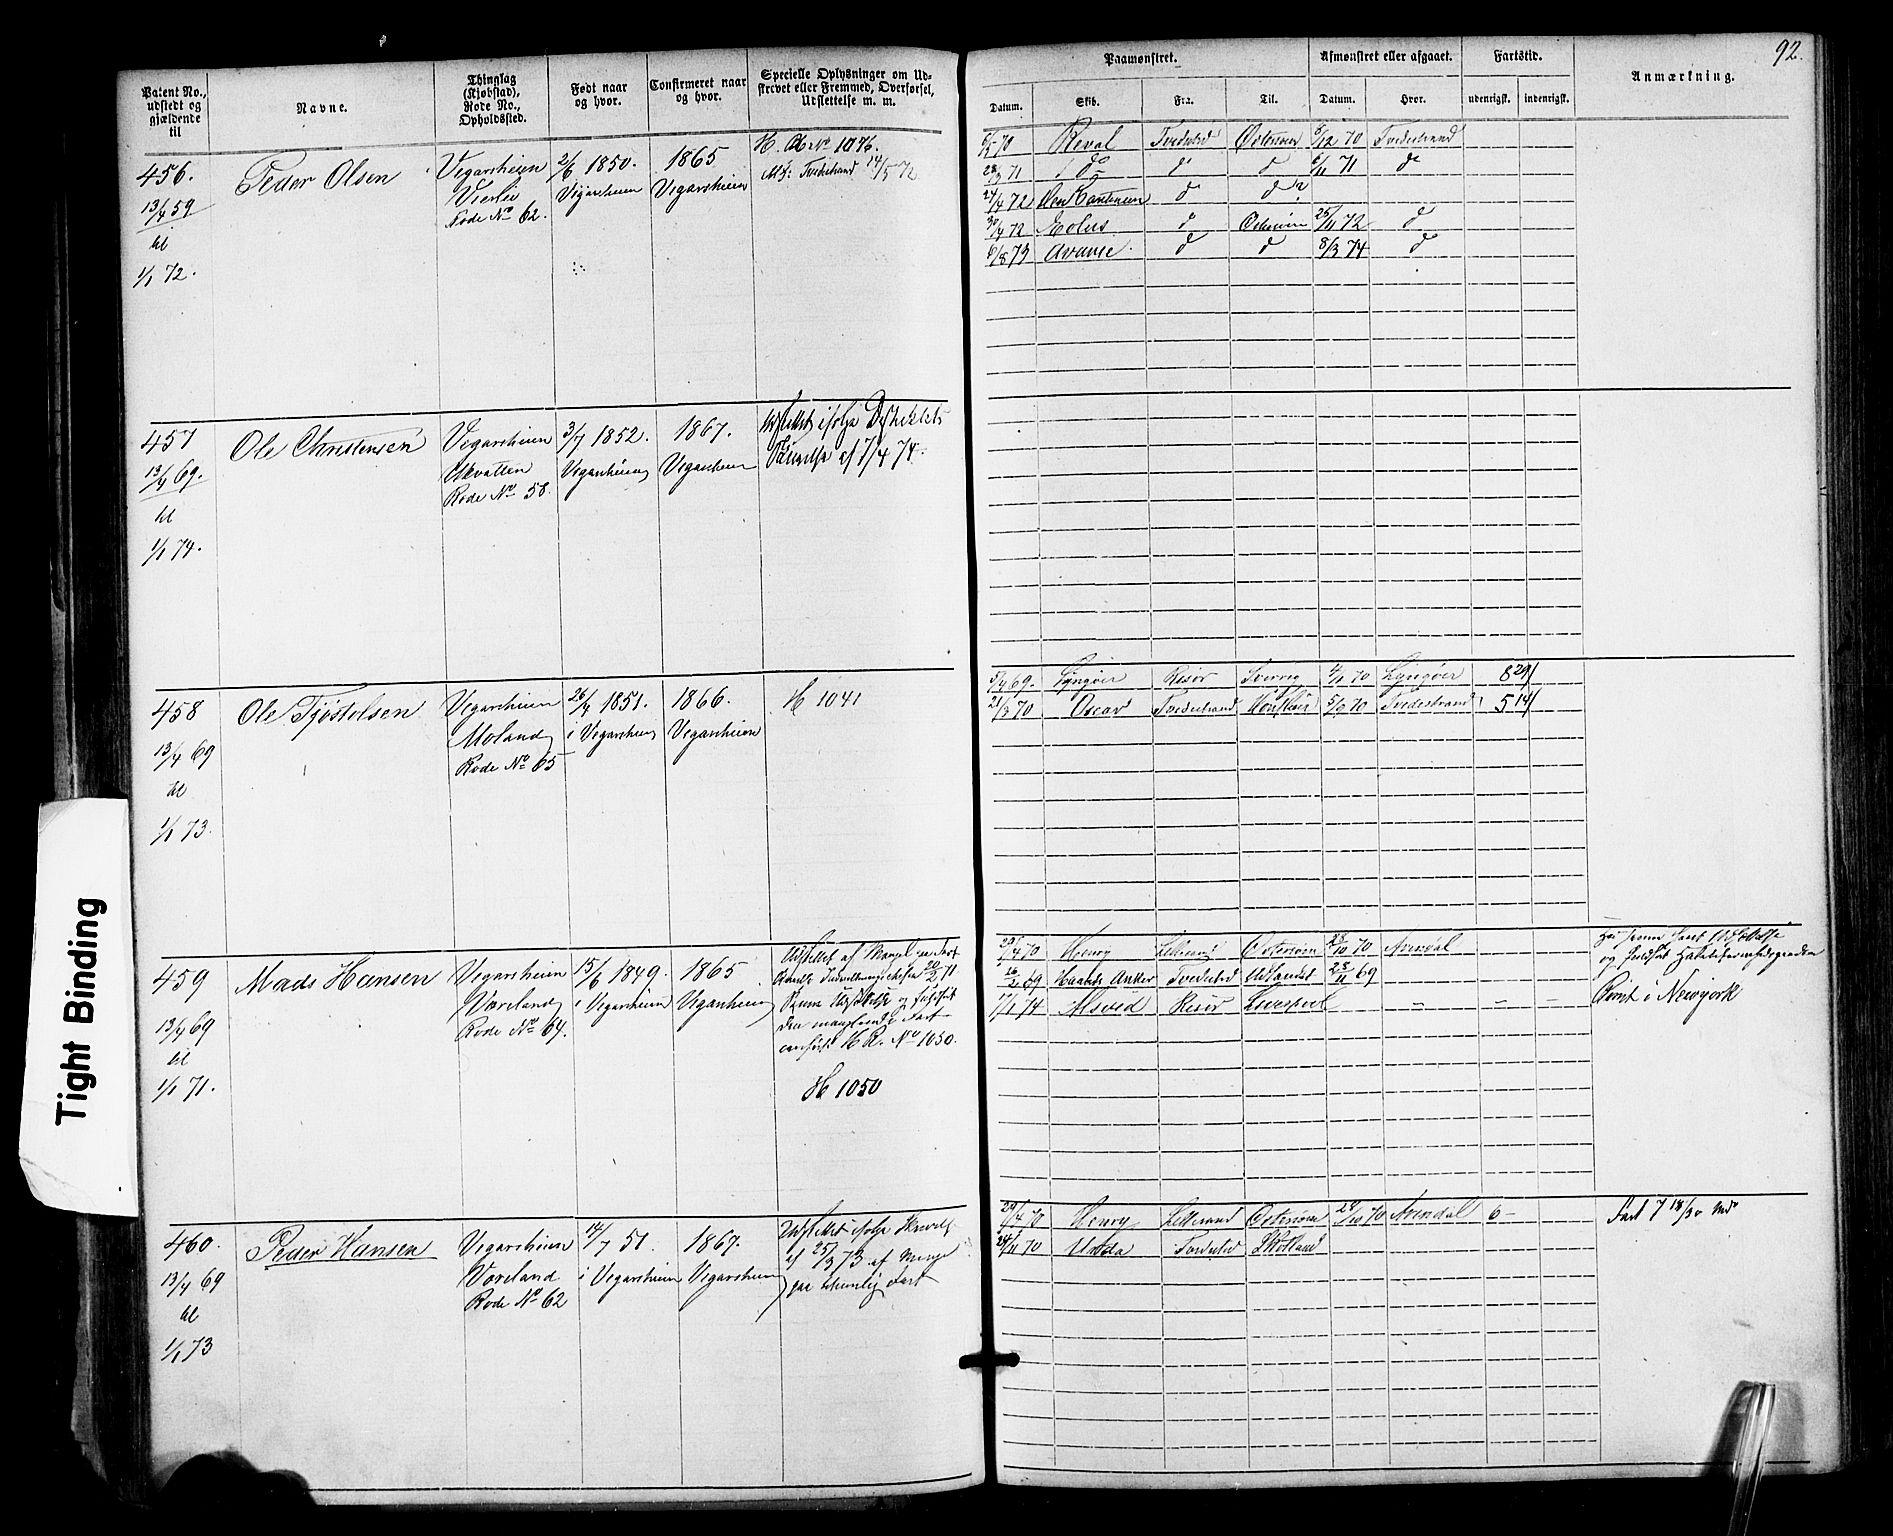 92.
Patent No., udstedt og gjældende til
Navne.
Thinglag (Kjøbstad), Rode No., Opholdssted.
Født naar og hvor.
Confirmeret naar og hvor.
Specielle Oplysninger om Udskrevet eller Fremmed, Overførsel, Udslettelse m. m.
Paamønstret.
Datum. Skib. Fra. Til.
Afmønstret eller afgaaet.
Datum. Hvor.
Fartstid.
udenrigsk. indenrigsk.
Anmærkning.
456.
13/4 59
til
1/1 72.
Peder Olsen
Vegarsheien
Vierlie
Rode No 62.
2/6 1850.
Vegarsheien
1865
Vegarsheien
H. R No 1076.
Tvedestrand 14/5 72
70 Reval Tvedestrd Østersøen /12 70 Tvedestrand
71 do d d /11 71 d
24/4 72 d d
30/4 72 Æolus d Østersøen 25/11 72 d
6/8 73 Avance d d 8/3 74 d
457
13/4 69.
til
1/1 74.
Ole Christensen
Vegarsheien
Ukvatten
Rode No 58.
3/7 1852.
Vegarsheien
1867.
Vegarsheien
Udslettet ifølge
af 17/4 74.
458
13/4 69
til
1/1 73.
Ole Tjøstolsen
Vegarsheien
Moland
Rode No 65
26/4 1851.
i Vegarsheien
1866.
Vegarsheien
H 1041
5/4 69. Lyngøer Risør Sverrig 4/1 70 Lyngøer 8 29/
21/3 70 Oscar Tvedestrand 5/9 70 Tvedestrand 5 14/
459
13/4 69
til
1/1 71.
Mads Hansen
Vegarsheien
Voreland
Rode No 64.
15/6 1849.
i Vegarsheien
1865
Vegarsheien
Udslettet af Mangel paa Fart
20/2 71
den manglende Fart
H R. No 1050.
H 1050
29/4 70 Henry Østersøen 28/10 70 Arendal
16/2 69 Haabets Anker Tvedestrd Udlandet 23/11 69
7/1 74 Alsved Risør Liverpool – – –
Rømt i Newyork
460.
13/4 69
til
1/1 73
Peder Hansen
Vegarsheien
Voreland
Rode No 62
14/7 51.
i Vegarsheien
1867.
Vegarsheien
Udslettet ifølge Skrivelse
af 25/3 73 af Mangel
paa Fart
29/4 70 Henry Østersøen 28/10 70 Arendal 6 –
24/11 70 Unda Tvedestrd Skotland
Fart 7 18/30 Md
Tight Binding